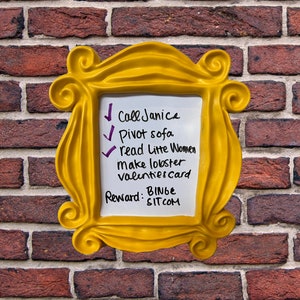 ✓ Call Janice
✓ Pivot sofa
✓ read Litte Women
make lobster
valenties card
Reward: BINGE
SITCOM